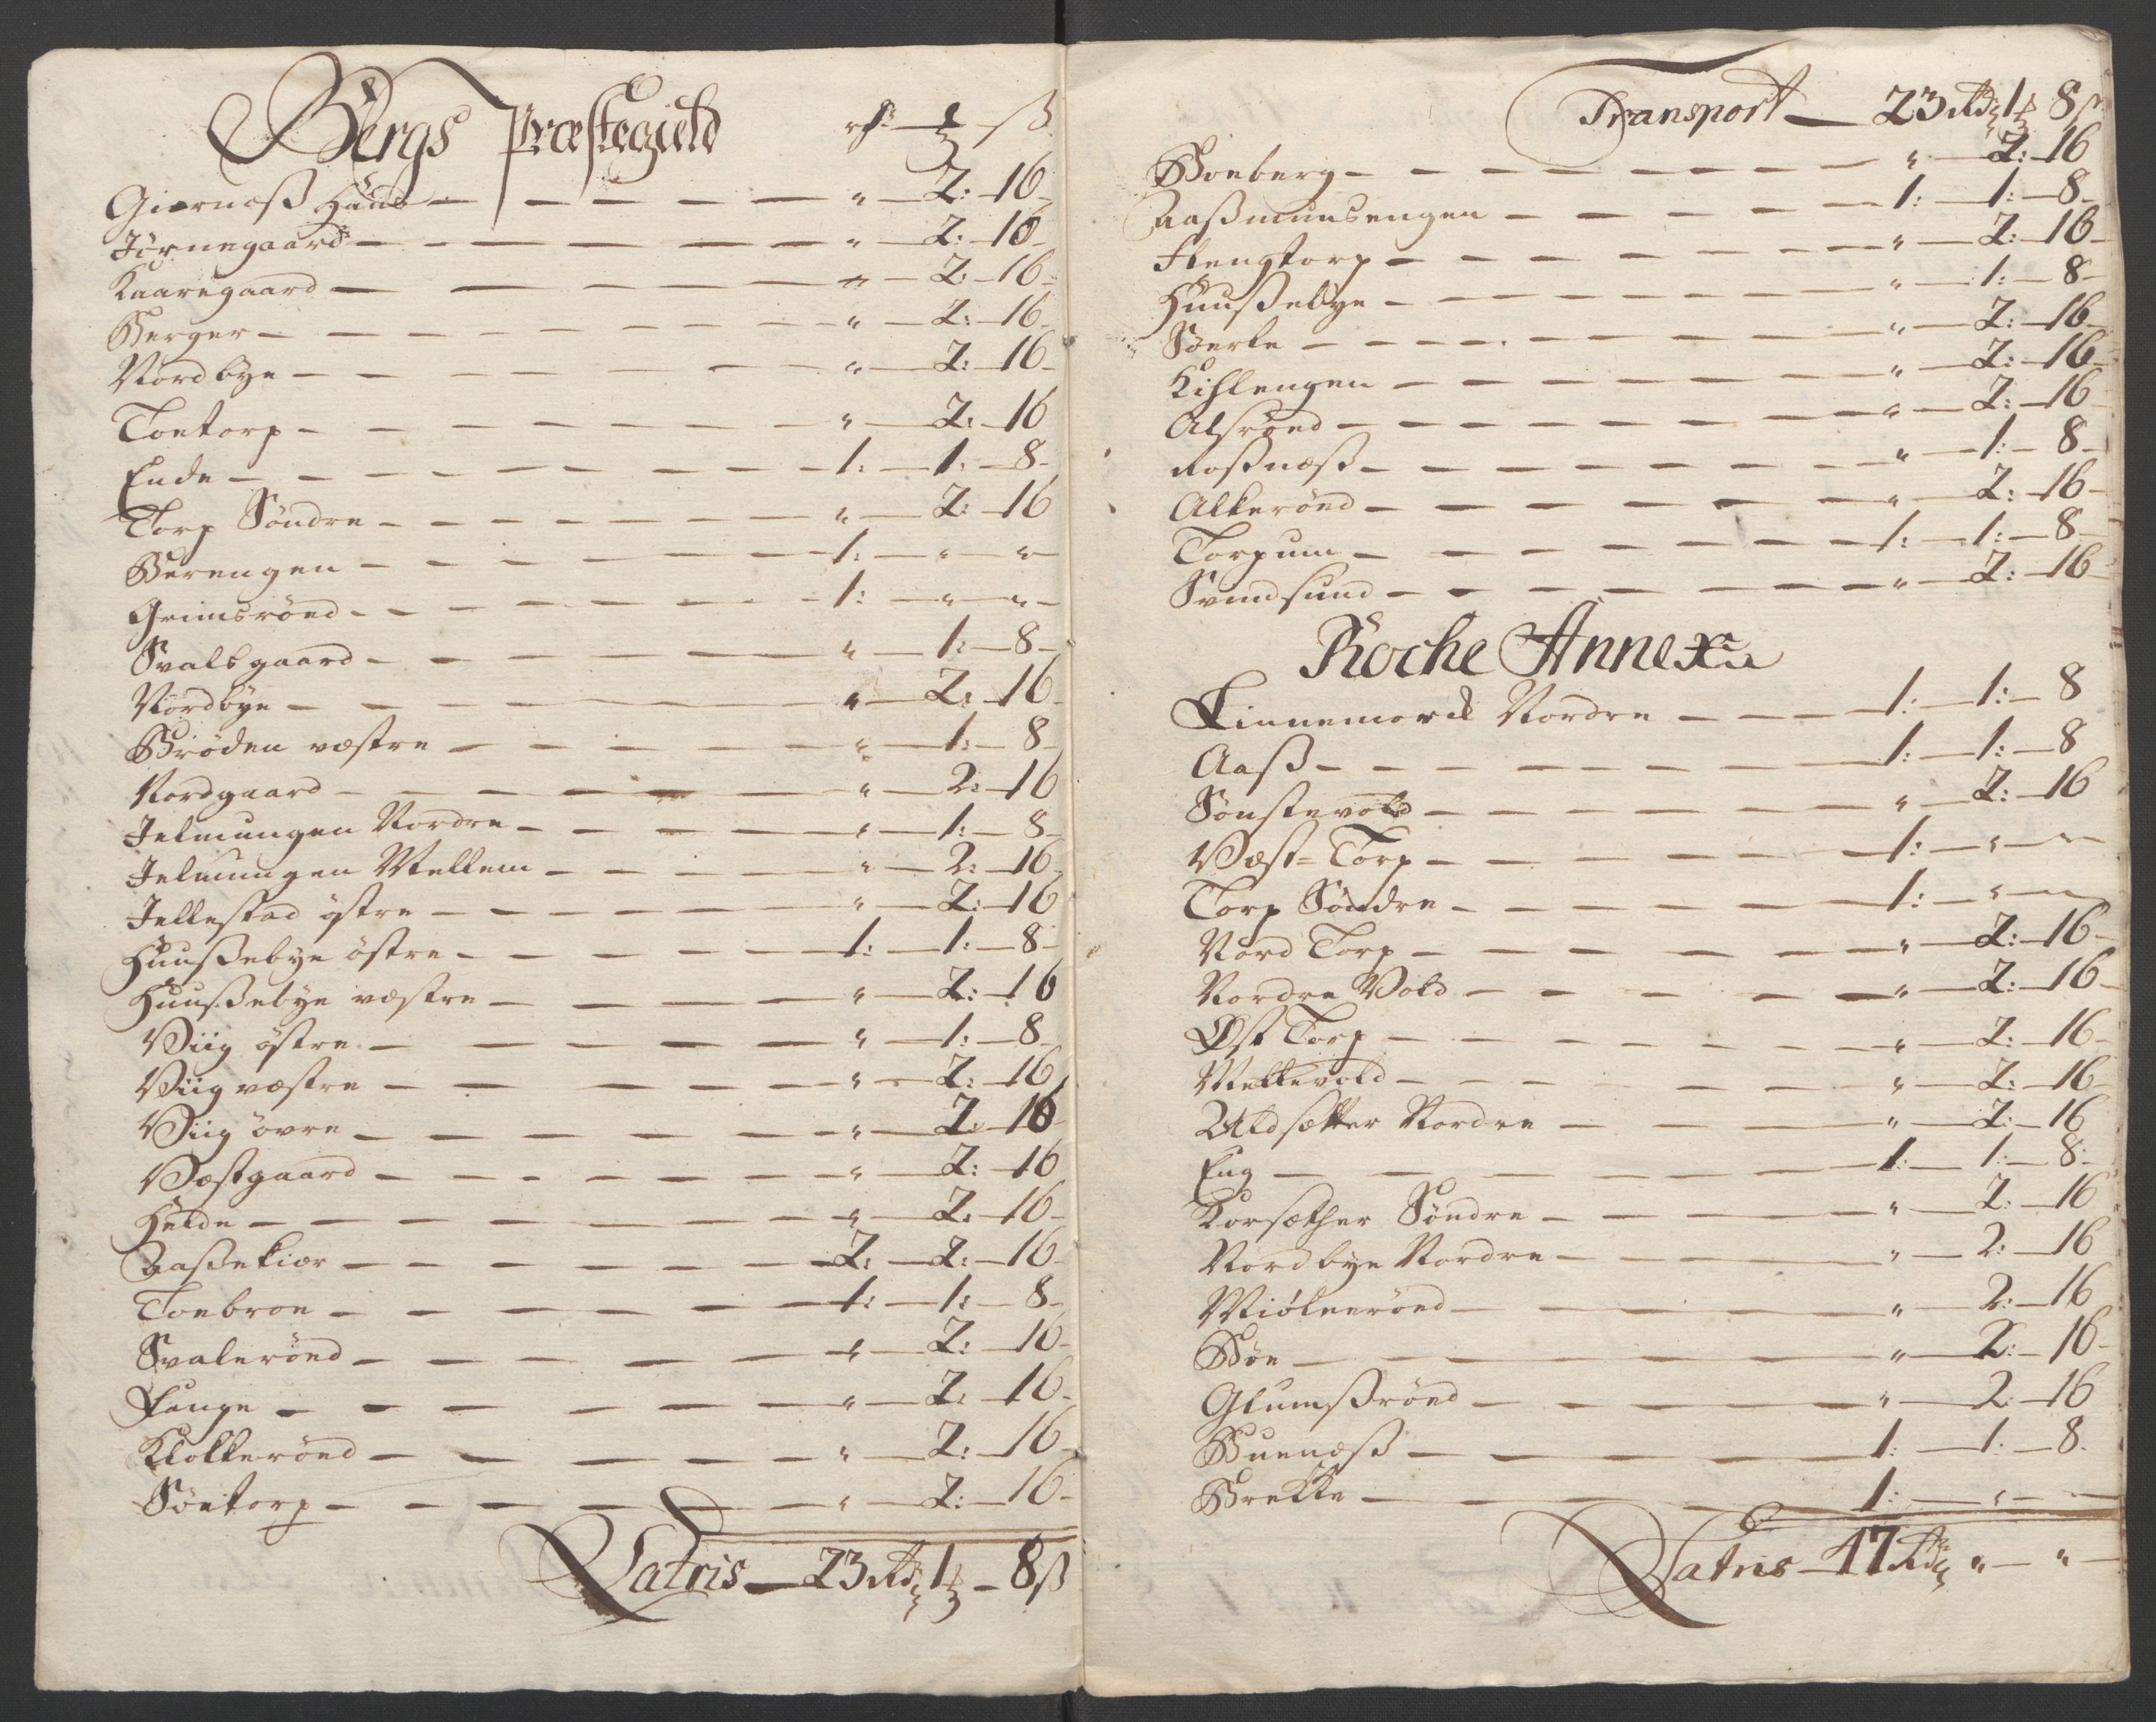 Bergs Præstegield rdr — ß
Giernæß Hand " 2: 16
Jørnegaard " 2: 16
Kaaregaard " 2: 16
Berger " 2: 16
Nordbye " 2: 16
Toetorp " 2: 16
Ende 1: 1: 8
Torp Söndre " 2: 16
Berengen 1: " "
Grimsröed 1: " "
Svalsgaard " 1: 8
Nordbye " 2: 16
Bröden væstre " 1: 8
Nordgaard " 2: 16
Jelmungen Nordre " 1: 8
Jelmungen Mellem " 2: 16
Jellestad östre " 2: 16
Huußebye östre 1: 1: 8
Huußebye væstre " 2: 16
Viig östre " 1: 8
Viig væstre " 2: 16
Viig övre " 2: 16
Væstgaard " 2: 16
Helde " 2: 16
Aaßekier 2: 2: 16
Toebroe 1: 1: 8
Svaleröed " 2: 16
Fange " 2: 16
Klokkeröed " 2: 16
Söetorp " 2: 16
Latris 23 Rd 1 8 ß
Transport 23 Rd 1 8 ß
Boeberg " 2: 16
Aaßmunsengen 1: 1: 8
Stengtorp " 2: 16
Huußebye " 1: 8
Söerbe " 2: 16
Kislengen " 2: 16
Alsröed " 2: 16
Roßnæß " 1: 8
Akkeröed " 2: 16
Torpum 1: 1: 8
Svindsund " 2: 16
Rocke Annexu
Linnemarck Nordre 1: 1: 8
Aaß 1: 1: 8
Sönstevold " 2: 16
Væst-Torp 1: " "
Torp Söndre 1: " "
Nord Torp " 2: 16
Nordre Vold " 2: 16
Øst Torp " 2: 16
Mellevold " 2: 16
Uldsætter Nordre " 2: 16
Eng 1: 1: 8
Korsæther Söndre " 2: 16
Nordbye Nordre " 2: 16
Miölneröed " 2: 16
Böe " 2: 16
Glumßröed " 2: 16
Buenæß 1: 1: 8
Brekke 1: " "
Latris 47 Rd " "